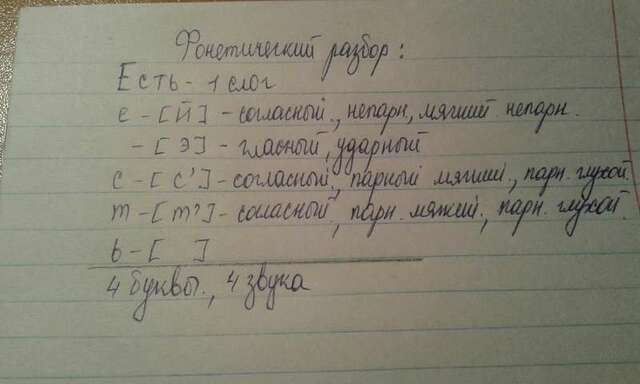 Фонетический разбор:
Есть - 1 слог
е - [Й] - согласный, непарн, мягкий непарн.
- [Э] - гласный, ударный
с - [с'] - согласный, парный мягкий, парн. глухой.
т - [т'] - согласный, парн. мягкий, парн. глухой.
ь - [ ]
4 буквы, 4 звука